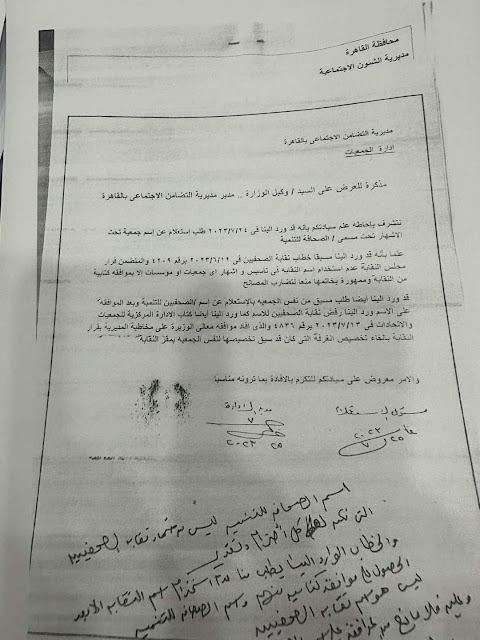 محافظة القاهرة
مديرية الشئون الاجتماعية
مديرية التضامن الاجتماعى بالقاهرة
ادارة الجمعيات
مذكرة للعرض على السيد / وكيل الوزارة .. مدير مديرية التضامن الاجتماعى بالقاهرة
نتشرف باحاطه علم سيادتكم بأنه قد ورد الينا فى ٢٠٢٣/٧/٢٤ طلب استعلام عن إسم جمعية تحت
الاشهار تحت مسمى / الصحافة للتنمية
علما بأنه قد ورد الينا مسبقا خطاب نقابة الصحفيين فى ٢٠٢٣/٦/١٢ برقم ٤٢٠٩ والمتضمن قرار
مجلس النقابة عدم استخدام اسم النقابه فى تأسيس و اشهار اى جمعيات او مؤسسات الا بموافقه كتابية
من النقابة وممهورة بخاتمها منعا لتضارب المصالح
قد ورد الينا أيضا طلب مسبق من نفس الجمعيه بالاستعلام عن اسم /الصحفيين للتنمية وبعد الموافقه
على الاسم ورد الينا رفض نقابة الصحفيين للاسم كما ورد الينا أيضا كتاب الادارة المركزية للجمعيات
والاتحادات فى ٢٠٢٣/٧/١٣ برقم ٤٨٣٦ والذى افاد موافقه معالى الوزيرة على مخاطبة المديرية بقرار
النقابة بالغاء تخصيص الغرفة التى كان قد سبق تخصيصها لنفس الجمعيه بمقر النقابة
والامر معروض على سيادتكم للتكرم بالافادة بما ترونه مناسبا
مدير الادارة
٢٠٢٣
اسم الصحافة للتنمية ليس هو نقابة الصحفيين
التى نكن لها كل احترام وتقدير
والخطاب الوارد الينا يطلب منا عدم استخدام اسم النقابة الا بعد
الحصول على موافقة كتابية منهم واسم الصحافة للتنمية
ليس هو اسم نقابة الصحفيين
وعليه فلا مانع من